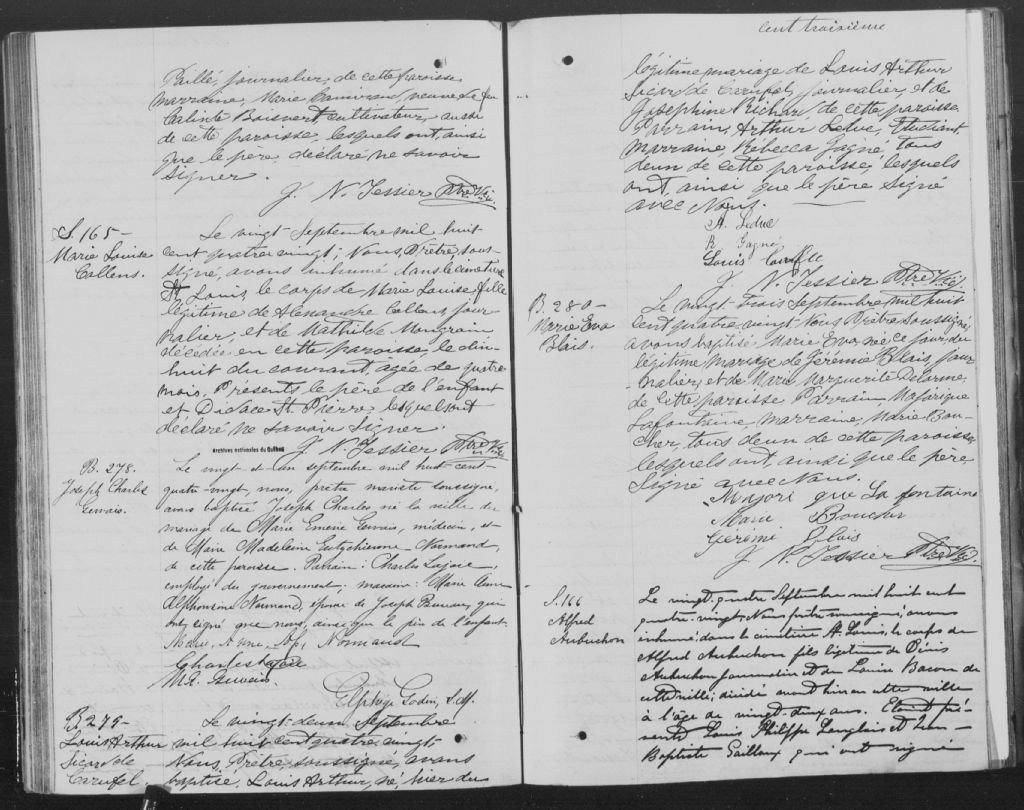 Paillé, journalier, de cette paroisse,
marraine, Marie veuve de feu
Calixte Boisvert cultivateur, aussi
de cette paroisse, lesquels ont, ainsi
que le père, déclaré ne savoir
signer.
J. N. Tessier Ptre Vic.
S. 165-
Marie Louise
Collens.
Le vingt Septembre mil huit
cent quatre vingt, Nous, Prêtre, sous-
signé, avons inhumé dans le cimetière
St Louis, le corps de Marie Louise, fille
légitime de Alexandre Collens, jour
nalier, et de Mathilde Mongrain
décédée en cette paroisse, le dix
huit du courant, agée de quatre
mois. Présents le père de l'enfant
et Didace St. Pierre, lesquels ont
déclaré ne savoir signer.
J. N. Tessier Ptre Vic.
Archives nationales du Québec
B. 278.
Joseph Charles
Gervais.
Le vingt et un septembre mil huit-cent-
quatre-vingt, nous, prêtre mariste soussigné,
avons baptisé Joseph Charles né la veille du
mariage de Marie Emerie Gervais, médecin, et
de Marie Madeleine Eutychienne Normand,
de cette paroisse. Parrain: Charles Lajoie,
employé du gouvernement; marraine: Marie Anne
Alphonsine Normand, épouse de Joseph qui
ont signé que nous, ainsi que le père de l'enfant.
Marie, Anne, Alp, Normand
Charles Lajoie
M. E. Gervais.
Elphège Godin, S.M.
B. 279-
Louis Arthur
Sicard de
Carufel
Le vingt-deux Septembre
mil huit cent quatre vingt,
Nous, Prêtre soussigné, avons
baptisé, Louis Arthur, né, hier du
Cent troisième
légitime mariage de Louis Arthur
Sicard de Carufel, journalier, et de
Joséphine Richard, de cette paroisse.
Parrain, Arthur Leduc, Etudiant,
Marraine Rebecca Gagné, tous
deux de cette paroisse, lesquels
ont, ainsi que le père signé
avec Nous.
A. Leduc
R Gagné
Louis Carufle
J. N. Tessier Ptre Vic.
B. 280-
Marie Eva
Blais.
Le vingt-trois Septembre mil huit
cent quatre-vingt Nous Prêtre soussigné,
avons baptisé, Marie Eva née ce jour, du
légitime mariage de Jérémie Blais, jour
nalier, et de Marie Marguerite Delorme,
de cette paroisse. Parrain, Majorique
Lafontaine, marraine, Marie Bou-
cher, tous deux de cette paroisse
lesquels ont, ainsi que le père
signé avec Nous.
Majori que La fontaine
Marie Boucher
Gérémi Blais
J. N. Tessier Ptre Vic.
S. 166
Alfred
Aubuchon
Le vingt-quatre Septembre mil huit cent
quatre-vingt, Nous prêtre soussigné, avons
inhumé dans le cimetière St. Louis, le corps de
Alfred Aubuchon fils légitime de Denis
Aubuchon journalier et de Louise Bacon de
cette ville, décédé avant hier en cette ville
à l'âge de vingt-deux ans. Etaient pré-
sents Louis Philippe Langlais et Jean-
Baptiste Gailloux qui ont signé